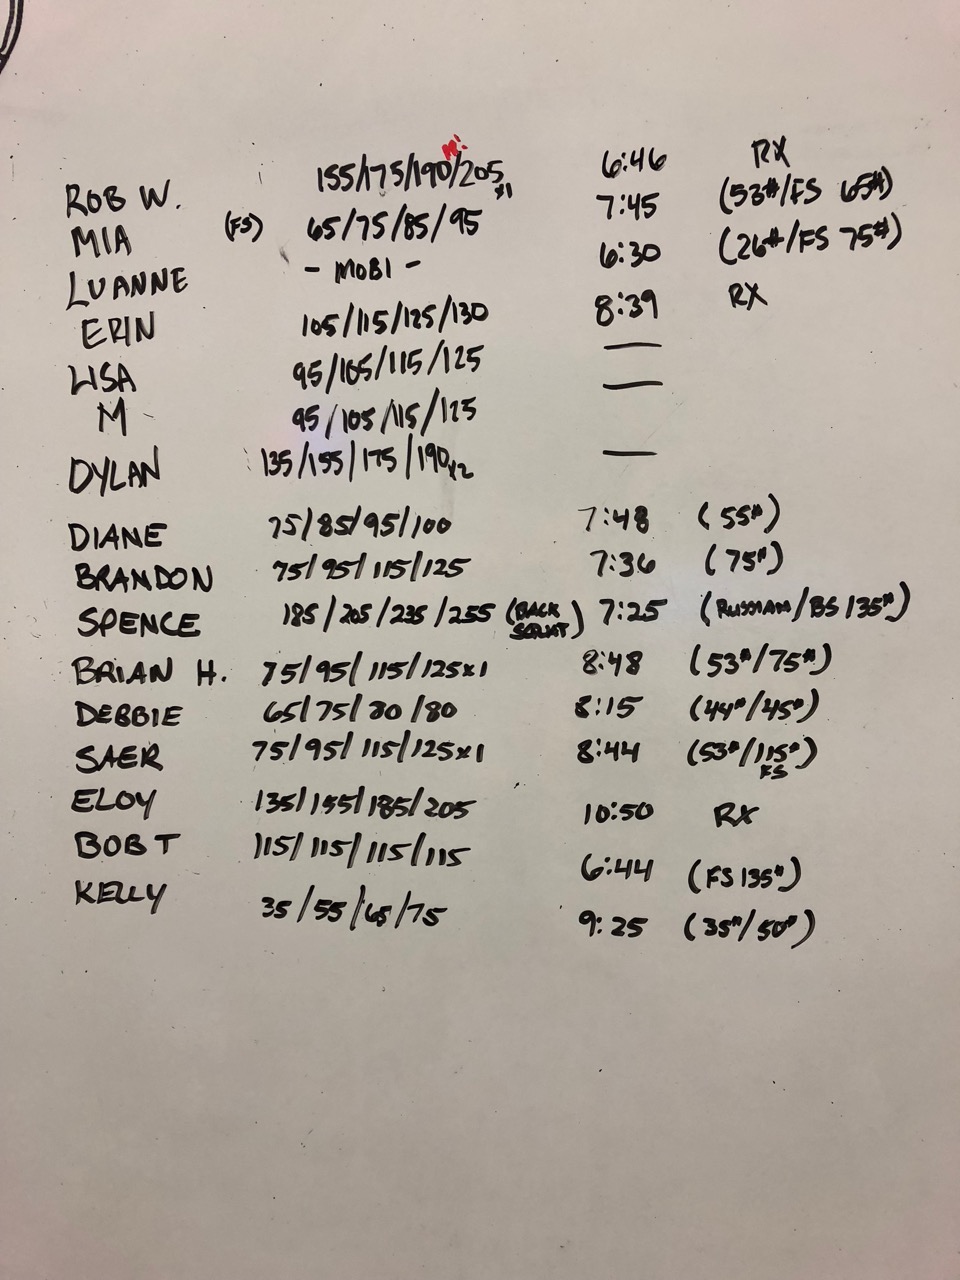 ROB W. 155/175/190/205 x1 6:46 RX
MIA (FS) 65/75/85/95 7:45 (53#/FS 65#)
LUANNE - MOBI - 6:30 (26#/FS 75#)
ERIN 105/115/125/130 8:39 RX
LISA 95/105/115/125 —
M 95/105/115/125 —
DYLAN 135/155/175/190x2 —
DIANE 75/85/95/100 7:48 (55#)
BRANDON 75/95/115/125 7:36 (75#)
SPENCE 185/205/235/255 (BACK SQUAT) 7:25 (RUSSIAN/BS 135#)
BRIAN H. 75/95/115/125x1 8:48 (53#/75#)
DEBBIE 65/75/80/80 8:15 (44#/45#)
SAER 75/95/115/125x1 8:44 (53#/115# FS)
ELOY 135/155/185/205 10:50 RX
BOB T 115/115/115/115 6:44 (FS 135#)
KELLY 35/55/65/75 9:25 (35#/50#)